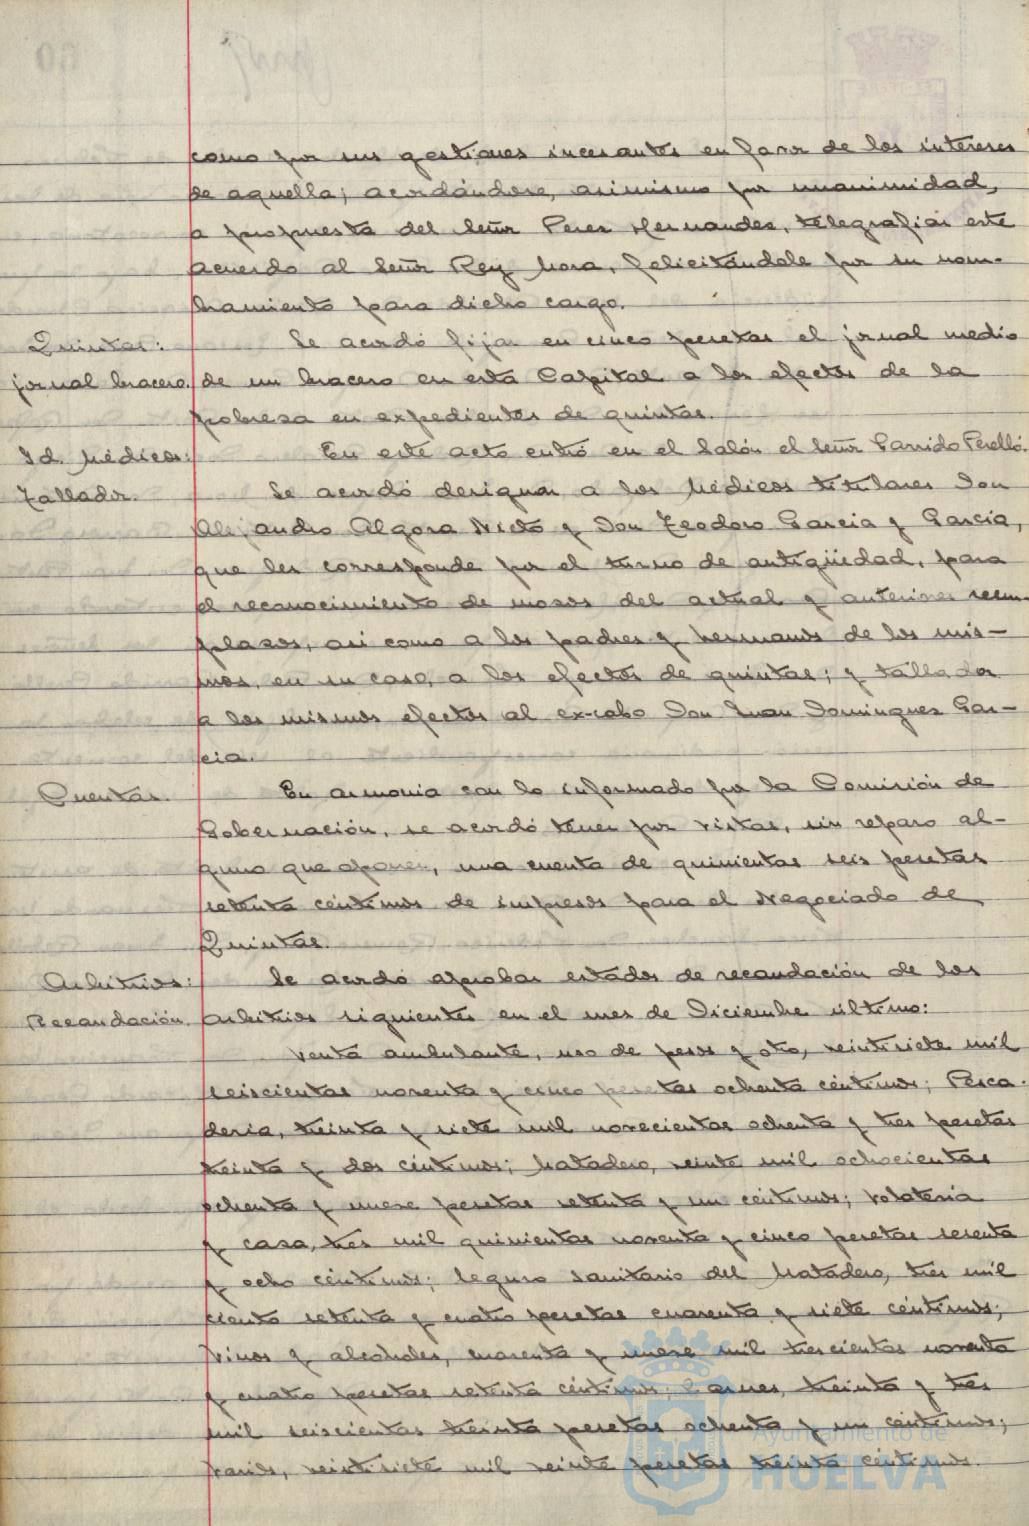 como por sus gestiones incesantes en favor de los intereses
de aquella; acordándose, asimismo por unanimidad,
a propuesta del Señor Perez Hernandez, telegrafiar este
acuerdo al Señor Rey Mora, felicitándole por su nom-
bramiento para dicho cargo.
Quintas: Se acordó fijar en cinco pesetas el jornal medio
jornal bracero. de un bracero en esta Capital a los efectos de la
pobreza en expedientes de quintas.
Id. Médicos: En este acto entró en el Salón el Señor Garrido Perelló.
Tallador. Se acordó designar a los Médicos titulares Don
Alejandro Algora Nieto y Don Teodoro Garcia y García,
que les corresponde por el turno de antigüedad, para
el reconocimiento de mozos del actual y anteriores reem-
plazos, asi como a los padres y hermanos de los mis-
mos, en su caso, a los efectos de quintas; y tallador
a los mismos efectos al ex-cabo Don Juan Dominguez Gar-
cia.
Cuentas. En armonia con lo informado por la Comisión de
Gobernación, se acordó tener por vistas, sin reparo al-
guno que oponer, una cuenta de quinientas seis pesetas
setenta céntimos de impresos para el Negociado de
Quintas.
Arbitrios: Se acordó aprobar estados de recaudación de los
Recaudación. arbitrios siguientes en el mes de Diciembre último:
Venta ambulante, uso de pesos y otro, veintisiete mil
seiscientas noventa y cinco pesetas ochenta céntimos; Pesca-
deria, treinta y siete mil novecientas ochenta y tres pesetas
treinta y dos céntimos; Matadero, veinte mil ochocientas
ochenta y nueve pesetas setenta y un céntimos; Volateria
y caza, tres mil quinientas noventa y cinco pesetas sesenta
y ocho céntimos; Seguro sanitario del Matadero, tres mil
ciento setenta y cuatro pesetas cuarenta y siete céntimos;
Vinos y alcoholes, cuarenta y nueve mil trescientas noventa
y cuatro pesetas setenta céntimos; Carnes, treinta y tres
mil seiscientas treinta pesetas ochenta y un céntimos;
Varios, veintisiete mil veinte pesetas treinta céntimos.
Ayuntamiento de
HUELVA